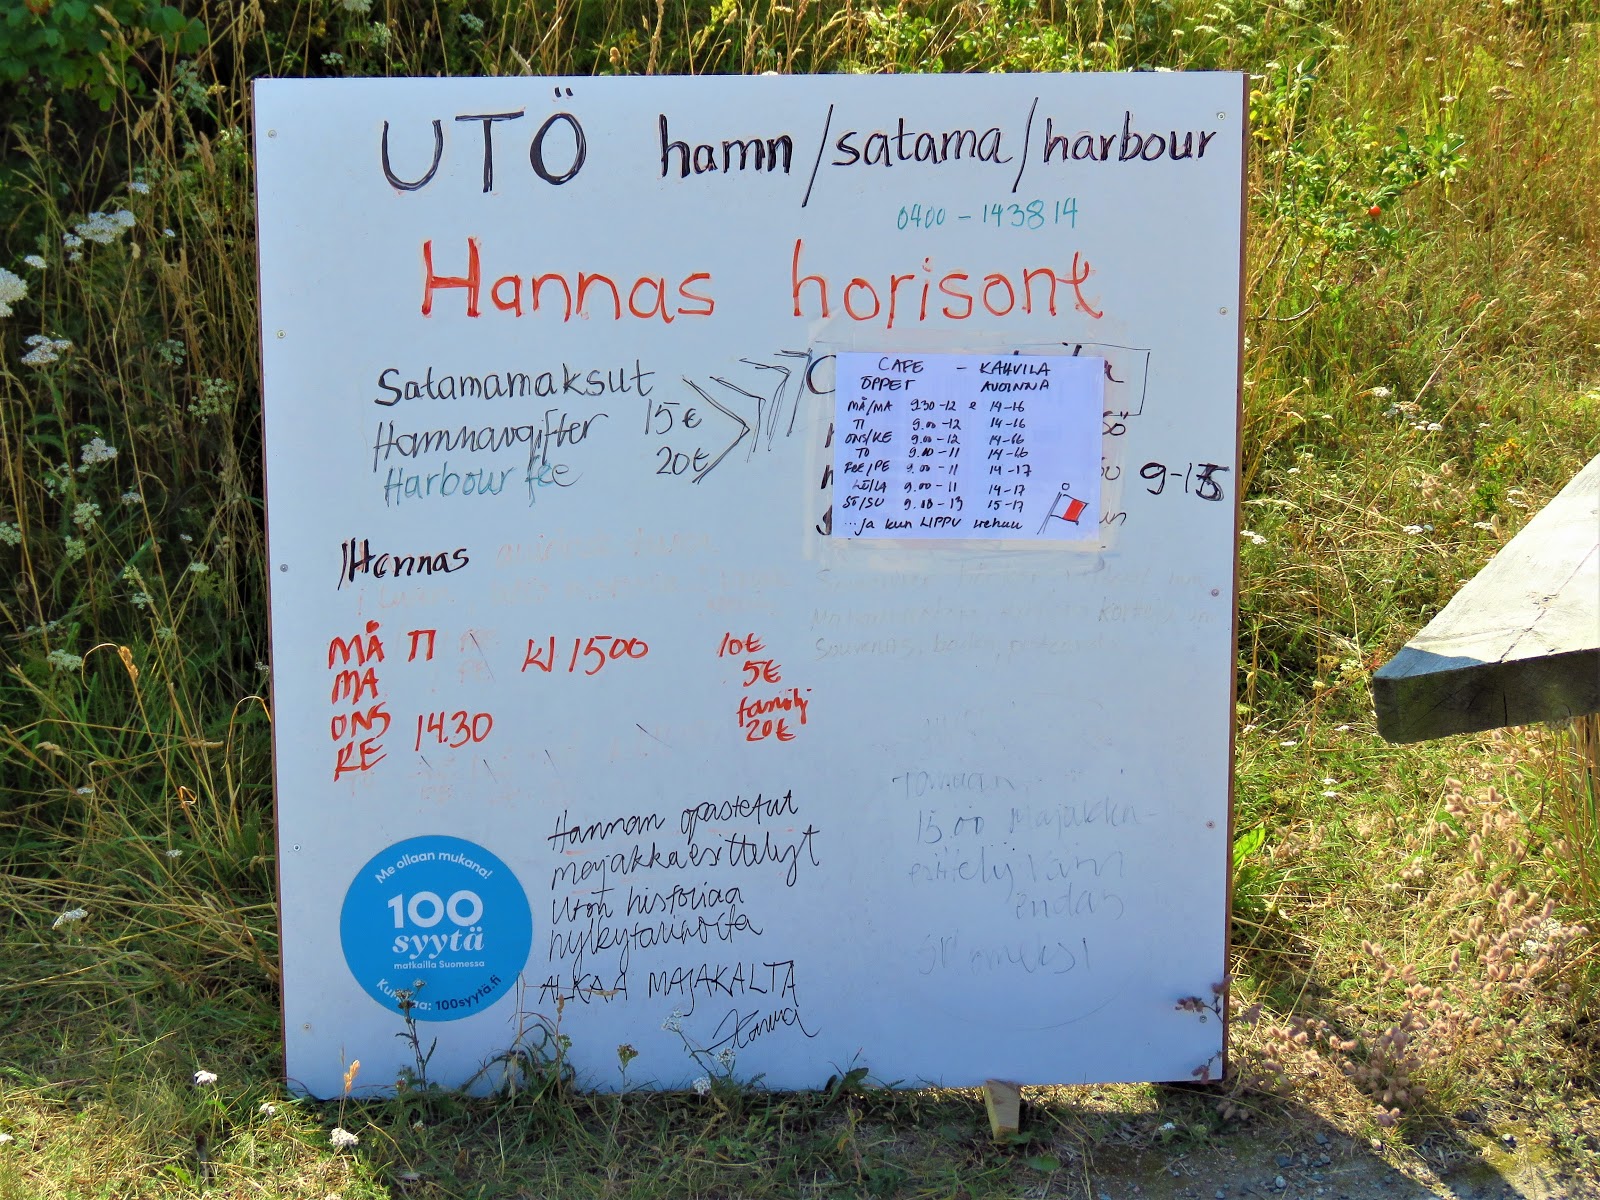 UTÖ hamn/satama/harbour
0400-143814
Hannas horisont
Satamamaksut
Hamnavgifter 15€
Harbour fee 20€
CAFE - KAHVILA
ÖPPET AVOINNA
MÅ/MA 9.30-12 14-16
TI 9.00-12 14-16
ONS/KE 9.00-12 14-16
TO 9.00-11 14-16
FRE/PE 9.00-11 14-17
LÖ/LA 9.00-11 14-17
SÖ/SU 9.00-13 15-17
...ja kun LIPPU liehuu
9-15
Hannas
MÅ TI kl 1500 10€
MA 5€
ONS 14.30 familj
KE 20€
Souvenirs, books, postcards
Hannan opastetut
majakkaesittelyt
Utön historiaa
hylkytarinoita
ALKAA MAJAKALTA
Hanna
15.00 Majakka-
Me ollaan mukana!
100
syytä
matkailla Suomessa
100syytä.fi